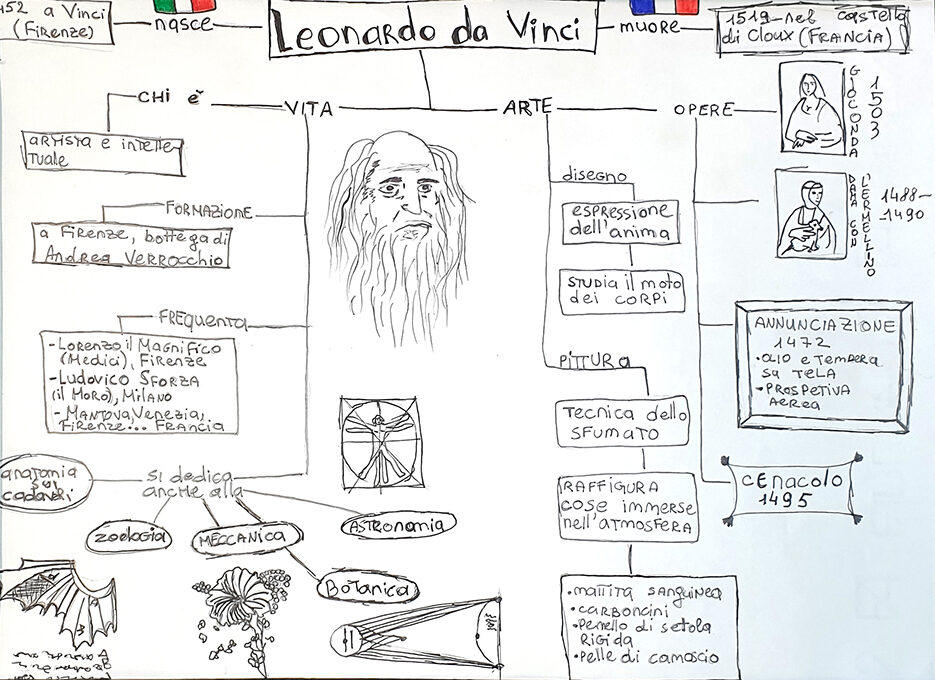 152 a Vinci
(Firenze)
nasce
Leonardo da Vinci
muore
1519-nel castello
di Cloux (FRANCIA)
CHI è
VITA
ARTE
OPERE
GIOCONDA
1503
artista e intellet
tuale
FORMAZIONE
a Firenze, bottega di
Andrea Verrocchio
FREQUENTA
-Lorenzo il Magnifico
(Medici), Firenze
-Ludovico Sforza
(il Moro), Milano
-Mantova, Venezia,
Firenze... Francia
disegno
espressione
dell'anima
STUDIA il moto
dei corpi
DAMA CON
L'ERMELLINO
1488-
1490
ANNUNCIAZIONE
1472
•olio e tempera
su tela
•Prospetiva
aerea
PITTURA
Tecnica dello
SFUMATO
RAFFIGURA
cose immerse
nell'atmosfera
•matita sanguinea
•carboncini
•Penello di setola
rigida
•Pelle di camoscio
CENACOLO
1495
si dedica
anche alla
anatomia
sui
cadaveri
zoologia
MECCANICA
ASTRONOMIA
BOTANICA